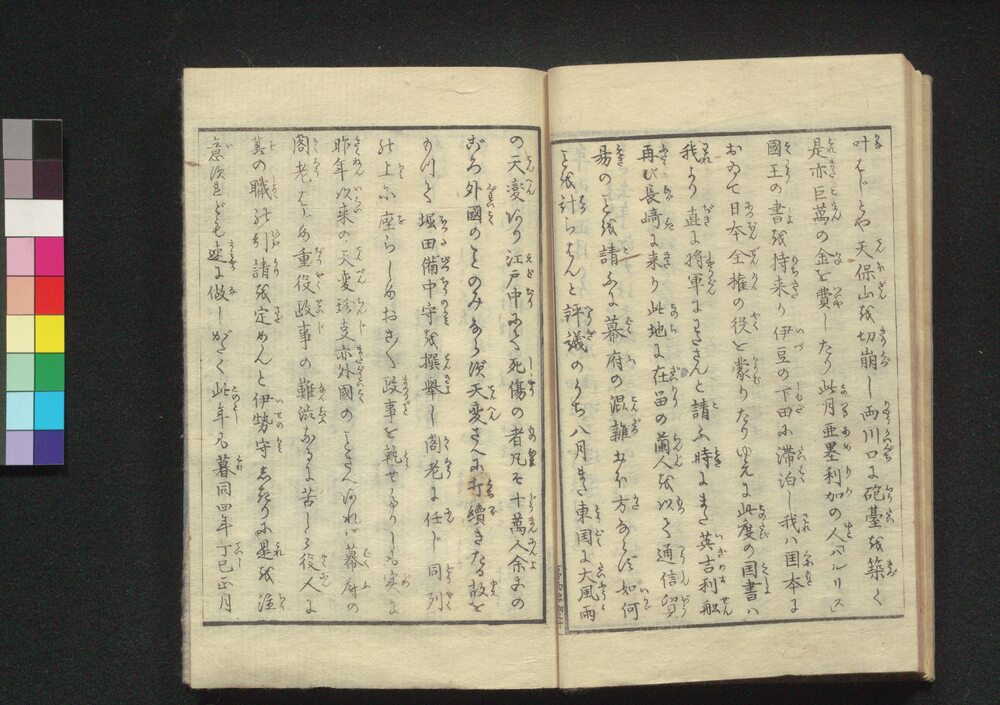 叶はじとや天保山を切崩し両川口に砲臺を築く
是亦巨萬の金を費したり此月亜墨利加の人「ハルリス」
國王の書を持来り伊豆の下田に滞泊し我ハ国本に
おゐて日本全権の役を蒙りたりゆゑに此度の国書ハ
我より直に将軍にまゐさんと請ふ時にまた英吉利舩
再び長崎に来り此地に在留の蘭人を以て通信貿
易のことを請ふに幕府の混雑大方ならず如何
とを計らはんと評議のうち八月また東国に大風雨
の天変あり江戸中にて死傷の者凡そ十萬人余すの
おろか外國のことのみならず天変さへに打續きたる故を
もつて堀田備中守を撰舉し閣老に任じ同列
の上に座らしめおさ〳〵政事を執せ給ひしも実に
昨年以来の天変珍支亦外國のことさへあれバ幕府の
閣老はじめ重役政事の難渋なるに苦しみ役人に
其の職の引請を定めんと伊勢守はじめに是を
意決すれども速に做しがたく此年も暮同四年丁巳正月